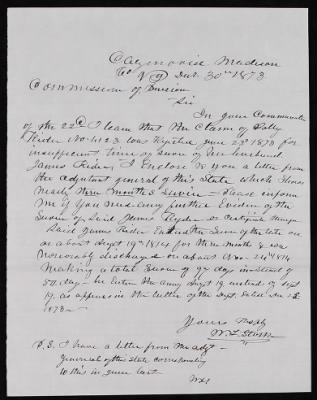 Cazenovia Madison
Co N Y Dec. 30th 1873
Commission of Pension
Sir
In your Communication
of the 22d I learn that the Claim of Polly
Rider No. 4123 was Rejected June 23d 1873 for
insufficient time of service of her husband
James Rider I Enclose to you a letter from
the adjutant general of this State which shows
nearly three months service - Please inform
me if you need any further Evidence of the
Service of said James Ryder or
Said James Rider Entered the Service of the late war
on about Sept 19th 1814 for three months & was
honorably discharged on about Nov. 24th 1814
Making a total Service of 97 days instead of
50 day - he Enter the army Sept 19 instead of Sept
19, as appears in the letter of the Dept. dated
1873 -
Yours Resptly
P.S. I have a letter from the adjt
general of the state corresponding
to this in your last